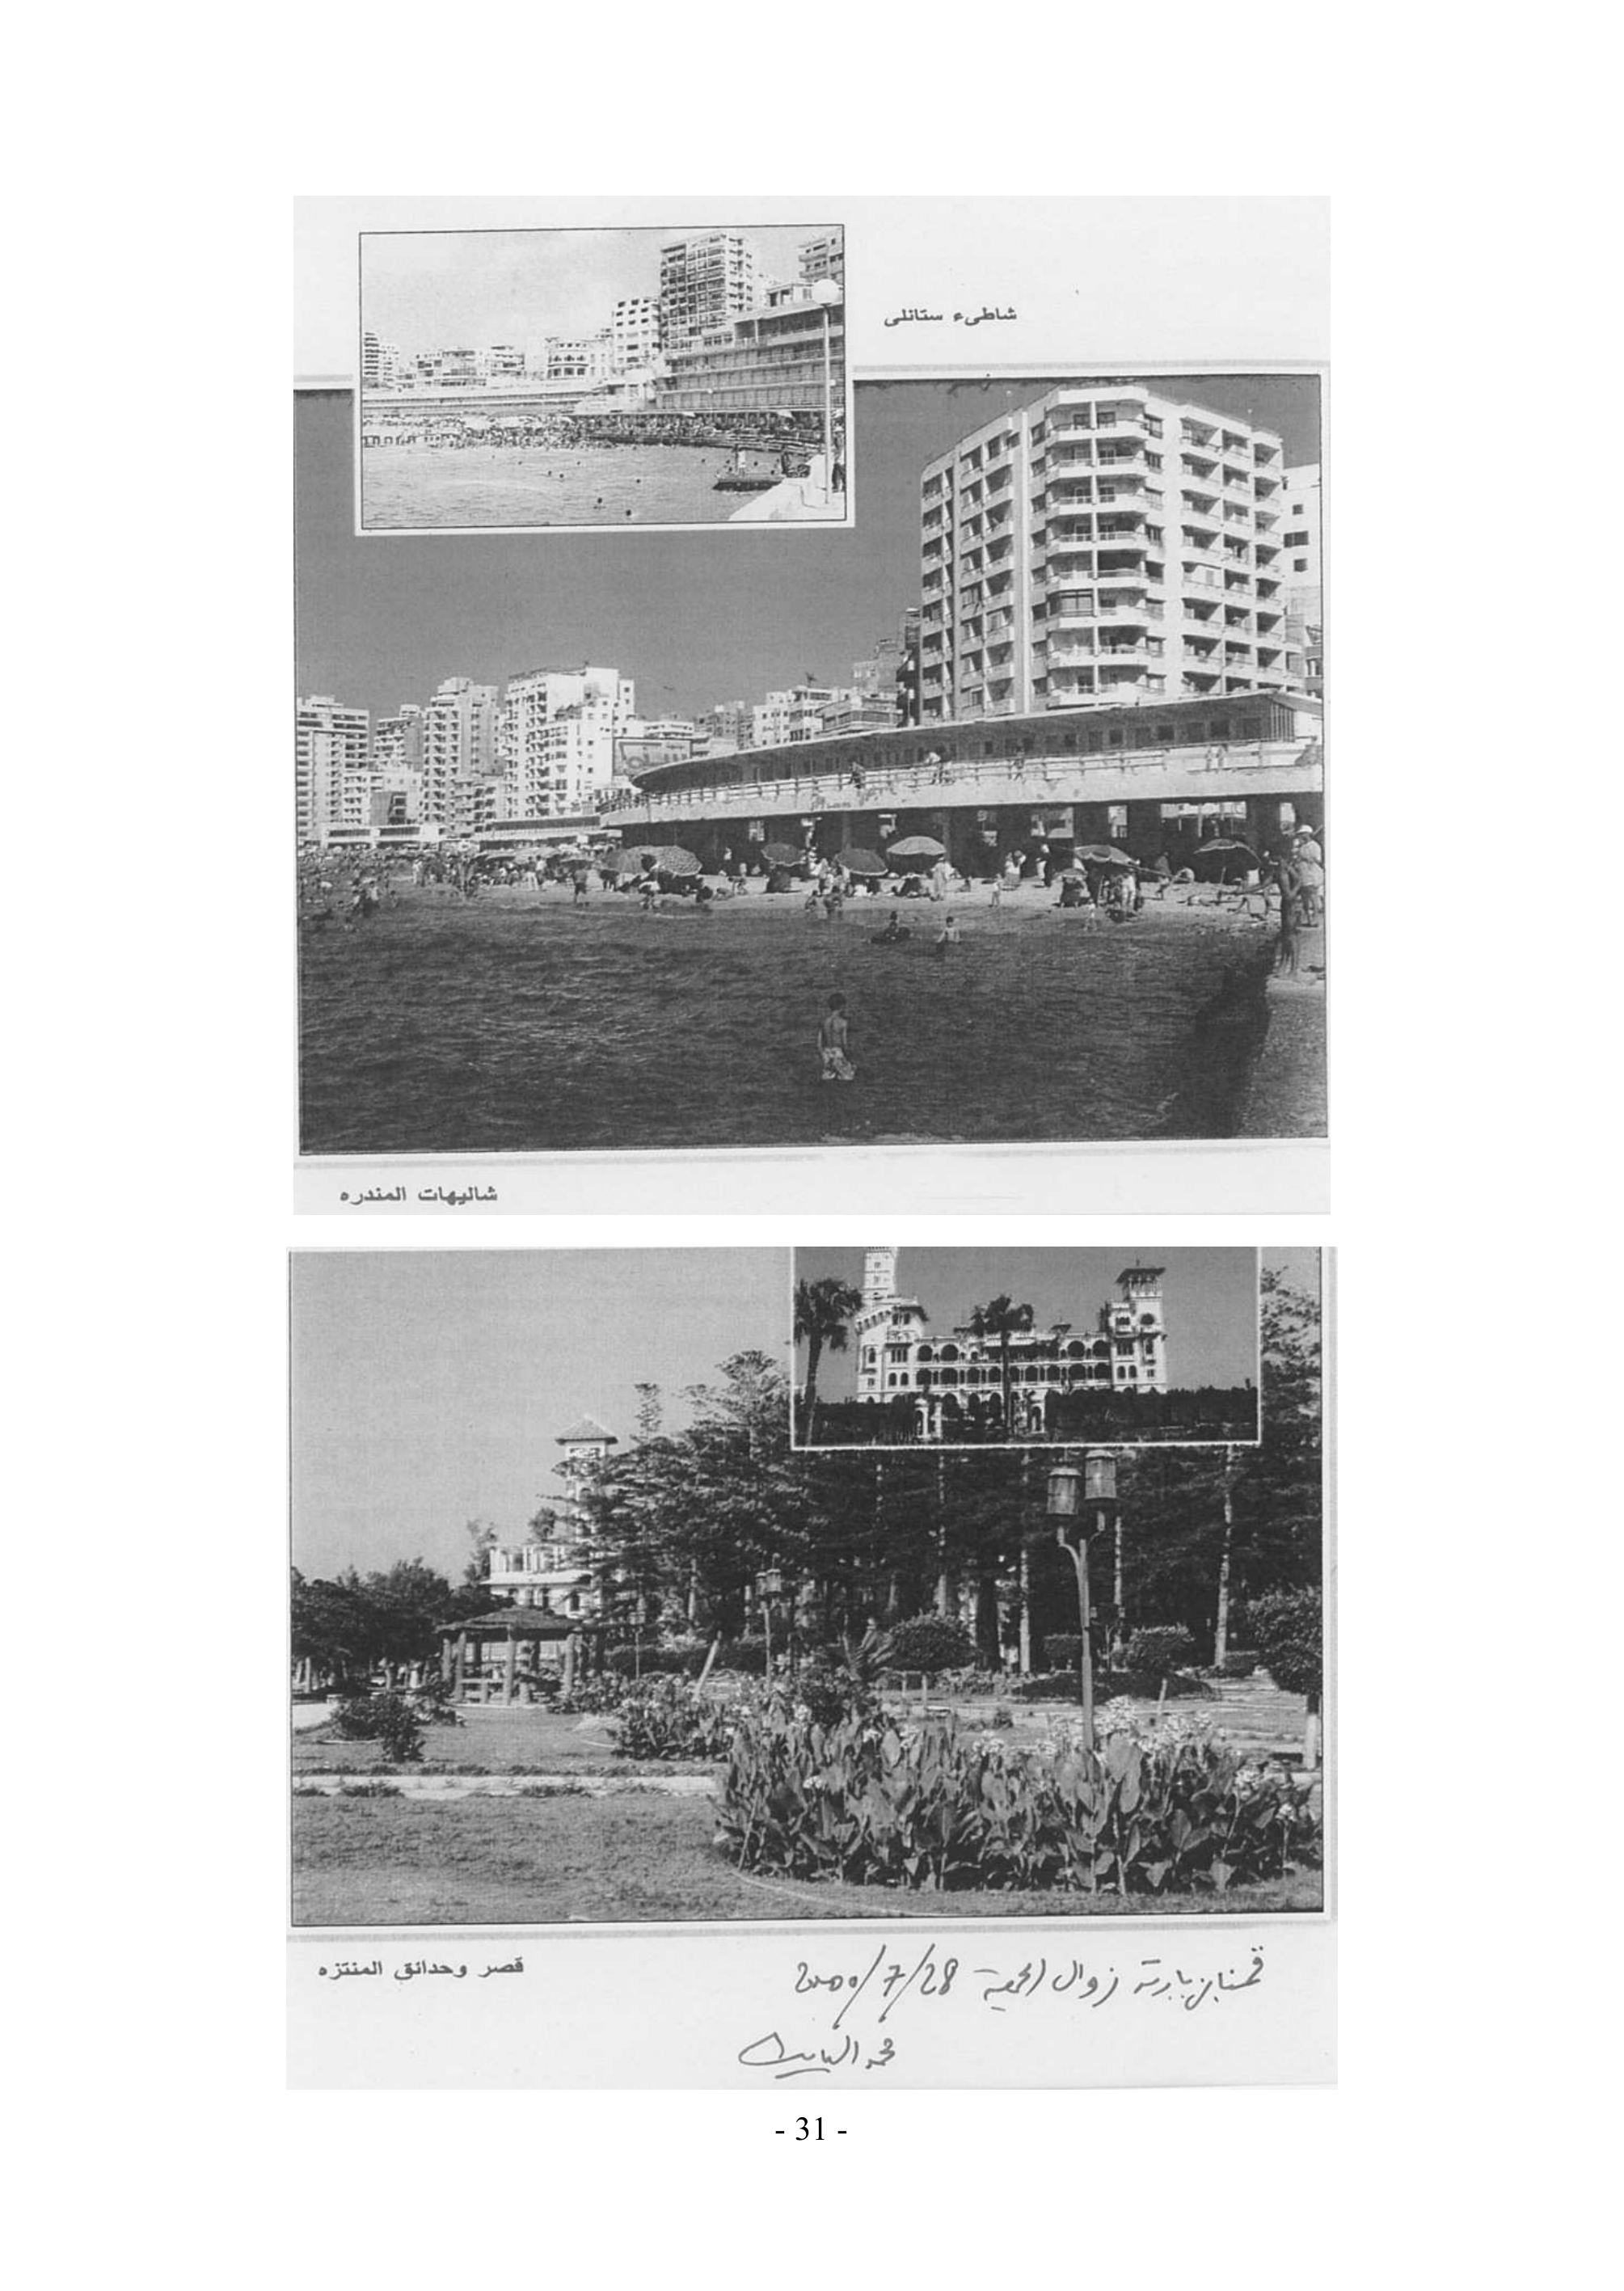 شاطىء ستانلى
شاليهات المندره
قصر وحدائق المنتزه
قمنا بزيارته زوال الجمعة 28/7/2000
محمد
- 31 -